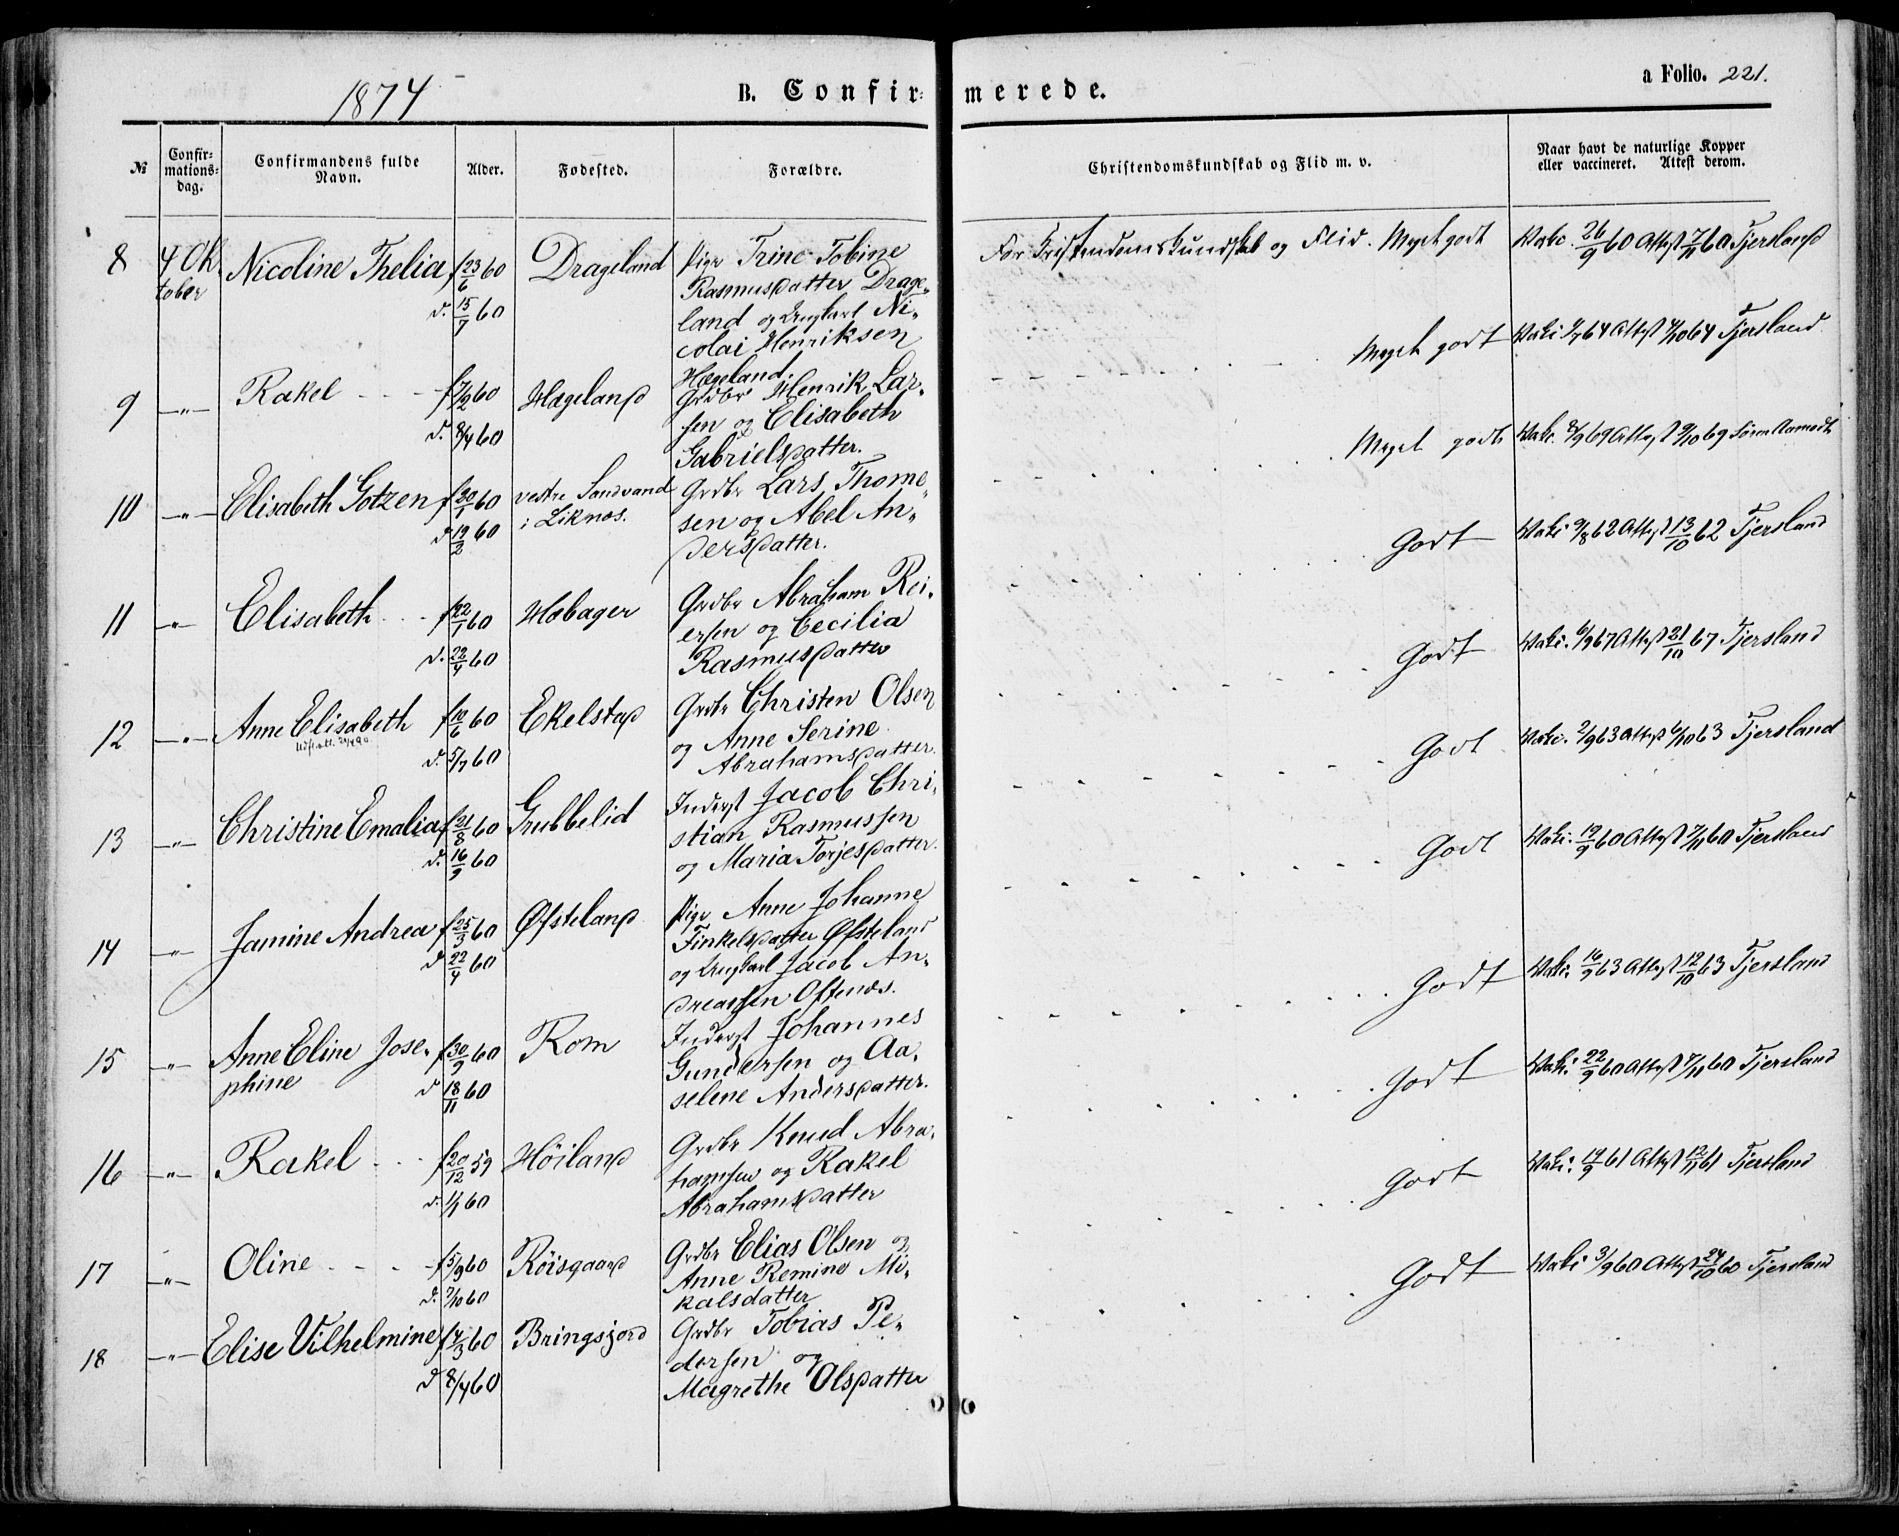 1874
B. Confir-
merede.
a Folio. 221.
№
Confir-
mations-
dag.
Confirmandens fulde
Navn.
Alder.
Fødested.
Forældre.
Christendomskundskab og Flid m. v.
Naar havt de naturlige Kopper
eller vaccineret. Attest derom.
8 4 Ok- Nicoline Thelia f 23/6 60 Drageland Pige Trine Tobine
tober d. 15/7 60 Rasmusdatter Drage-
land og Ungkarl Ni-
colai Henriksen
Hægeland.
For Kristendomskundskab og Flid. Meget godt Vakc. 26/9 60 Attest 7/11 60 Tjersland
9 —"— Rakel f 7/2 60 Hægeland Grdbr Henrik Lar-
d. 8/4 60 sen og Elisabeth
Gabrielsdatter.
Meget godt Vakc 64 Attest 64 Tjersland
10 —"— Elisabeth Gotzen f 20/1 60 vestre Sandvand Grdbr Lars Thome-
d 12/2 60 i Liknæs. sen og Abel An-
dersdatter.
Meget godt Vakc. 8/9 69 Attest 9/10 69 Søren Aamodt
11 —"— Elisabeth f 22/1 60 Hæbager Grdbr Abraham Rei-
d. 22/4 60 ersen og Cecilia
Rasmusdatter
Godt Vakc 9/8 62 Attest 13/10 62 Tjersland
12 —"— Anne Elisabeth f 10/6 60 Ekelstad Grdbr Christen Olsen
d. 5/7 60 og Anne Serine
Abrahamsdatter.
Godt Vakc. 6/9 67 Attest 21/10 67 Tjersland
13 —"— Christine Emalia f 21/8 60 Grubbelid Inderst Jacob Chri-
d. 16/9 60 stian Rasmussen
og Maria Torjesdatter.
Godt Vakc. 2/9 63 Attest 6/10 63 Tjersland
14 —"— Jamine Andrea f 25/3 60 Øfsteland Pige Anne Johanne
d 22/4 60 Tinkelsdatter Øfsteland
og Ungkarl Jacob An-
dreassen Oftenæs.
Godt Vakc. 19/9 60 Attest 7/11 60 Tjersland
15 —"— Anne Eline Jose- f 30/9 60 Rom Inderst Johannes
phine d 18/11 60 Gundersen og Aa-
selene Andersdatter.
Godt Vakc. 16/9 63 Attest 12/10 63 Tjersland
16 —"— Rakel f 20/12 59 Høiland Grdbr Knud Abra-
d. 1/1 60 hamsen og Rakel
Abrahamsdatter
Godt Vakc. 22/9 60 Attest 7/11 60 Tjersland
17 —"— Oline f 5/9 60 Røisgaard Grdbr Elias Olsen og
d. 7/10 60 Anne Remine Mi-
kalsdatter
Godt Vakc. 19/9 61 Attest 12/11 61 Tjersland
18 —"— Elise Vilhelmine f 4/3 60 Bringsjord Grdbr Tobias Pe-
d 8/4 60 dersen og
Magrethe Olsdatter
Godt Vakc 3/9 60 Attest 24/10 60 Tjersland